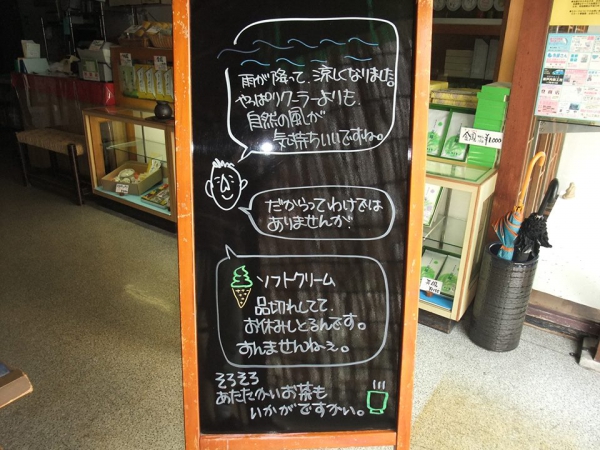 雨が降って、涼しくなりました。
やっぱりクーラーよりも、
自然の風が
気持ちいいですね。
だからってわけでは
ありませんが
ソフトクリーム
品切れしてて、
お休みしとるんです。
すんませんねぇ。
そろそろ
あたたかいお茶も
いかがですかい。